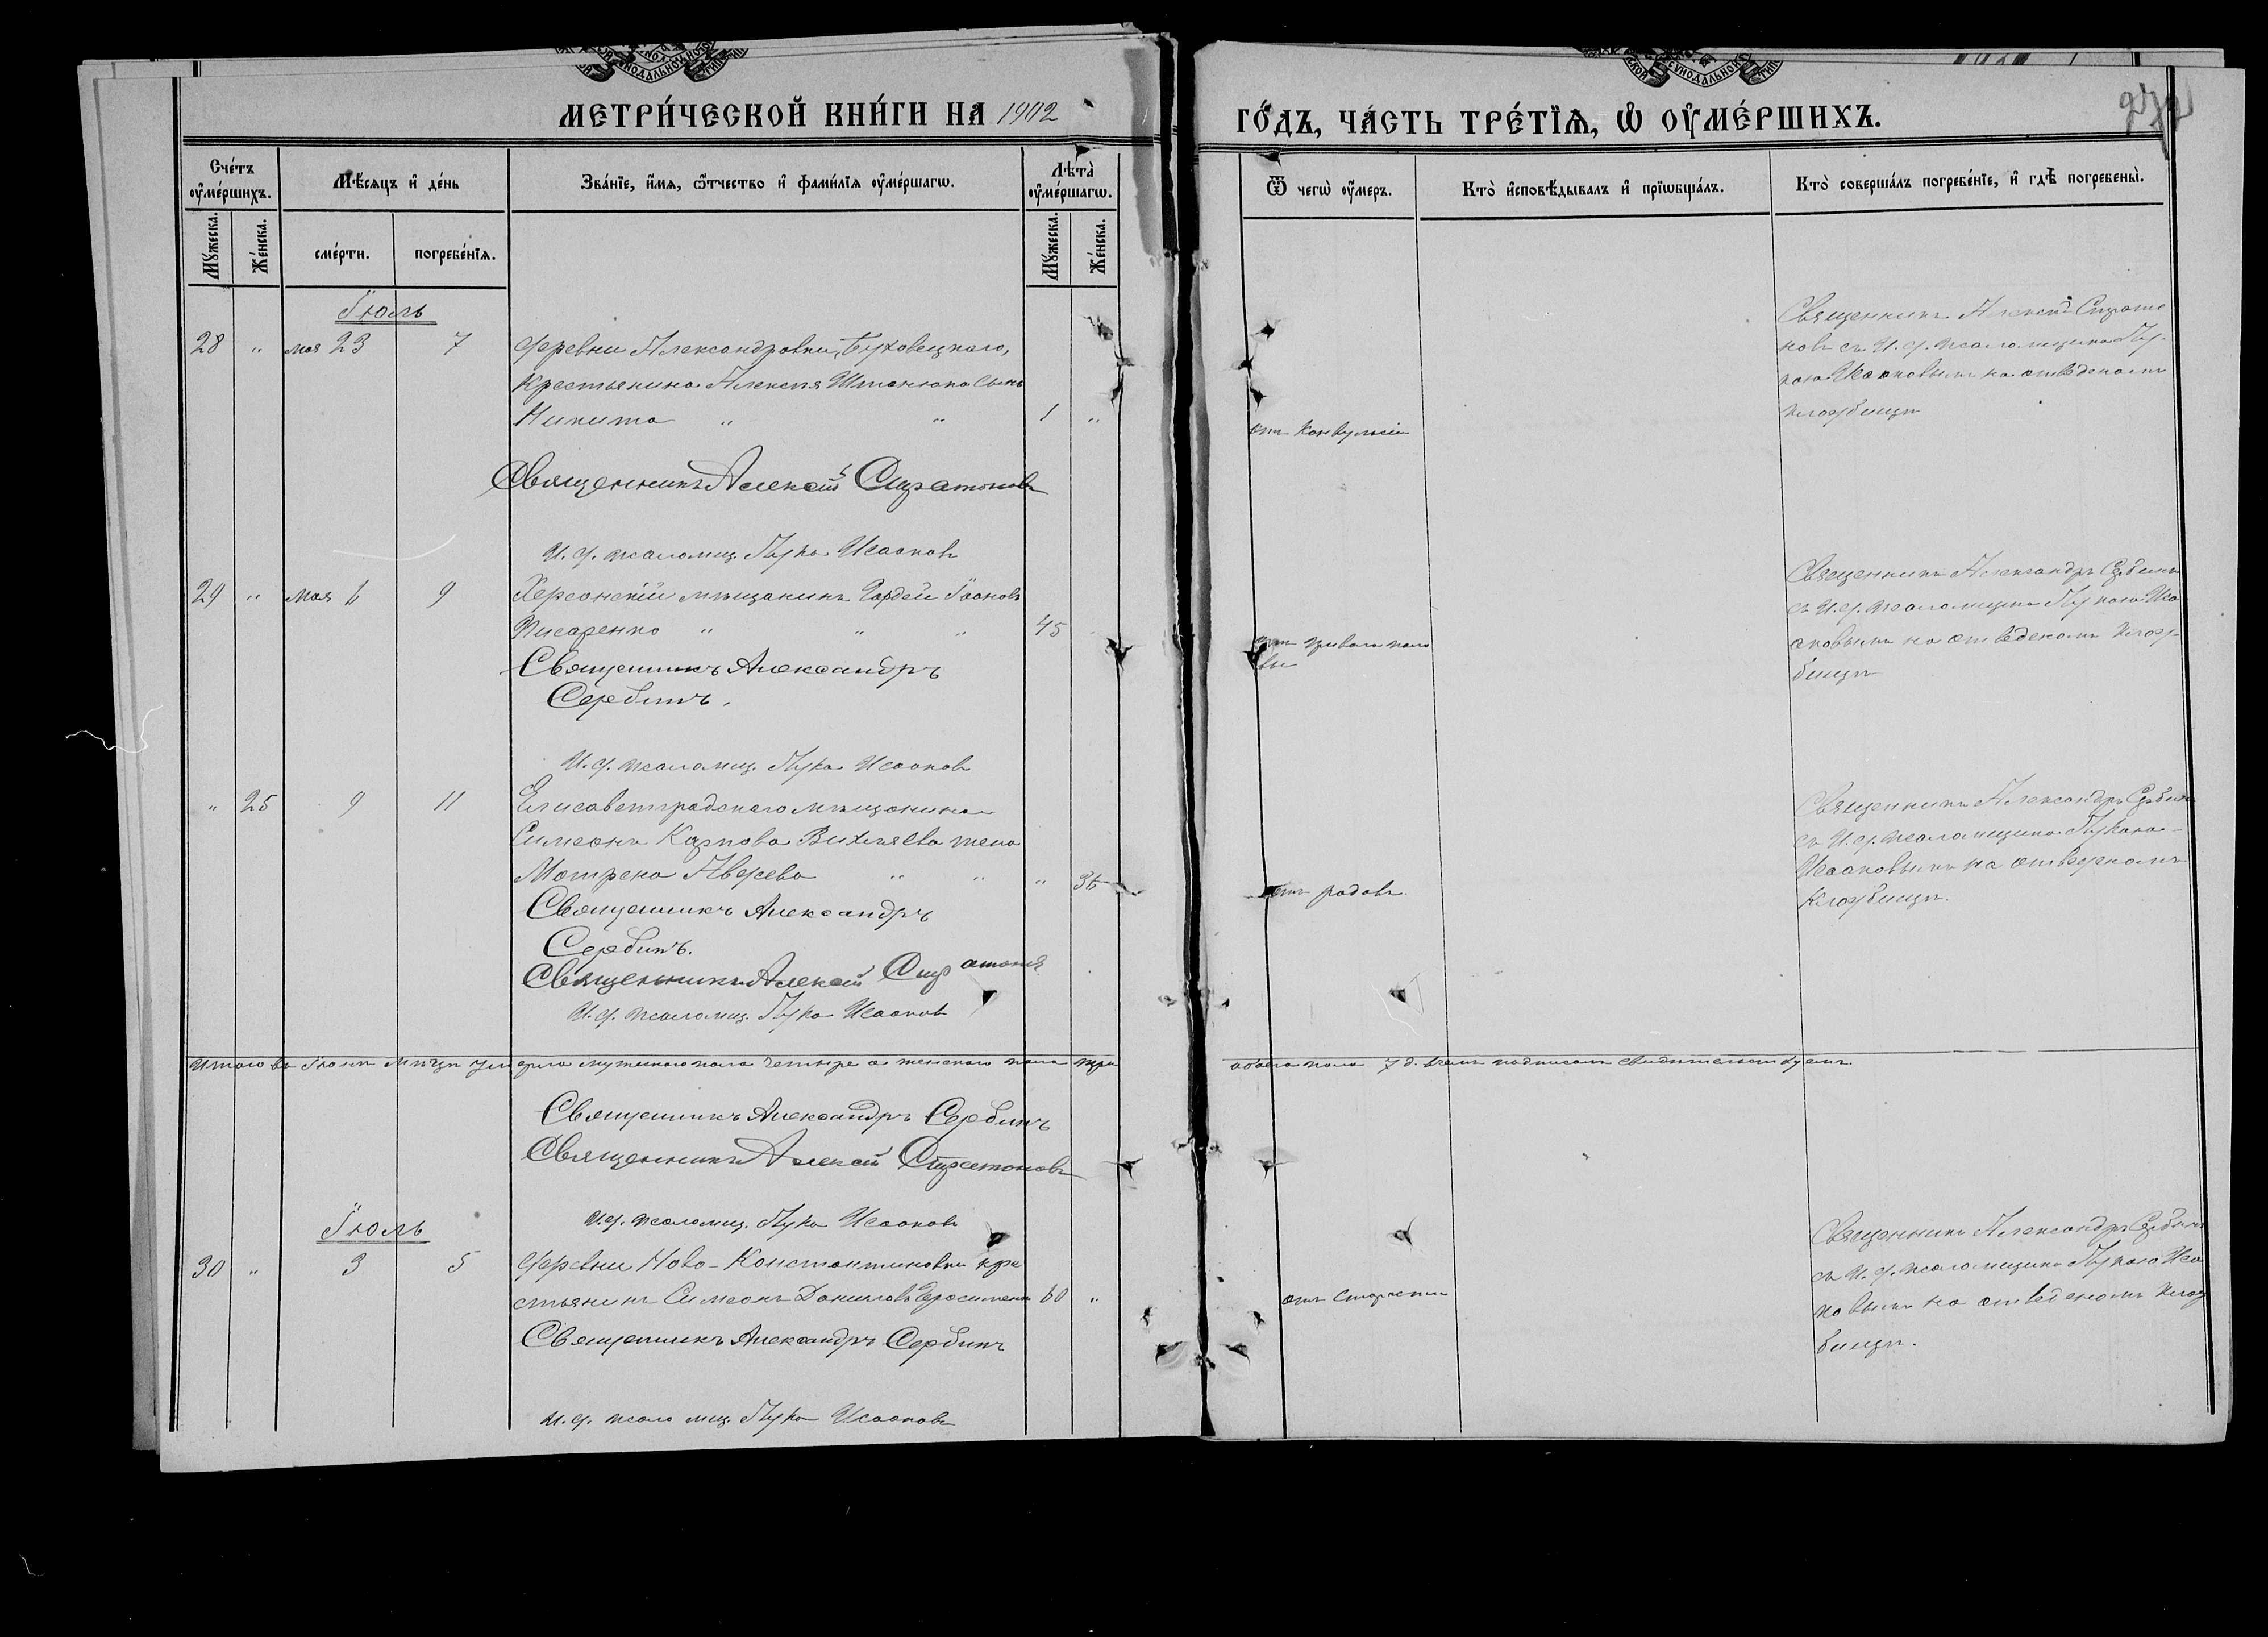 МЕТРИ́ЧЕСКОЙ КНИ́ГИ НА 1902
ГО́ДЪ, ЧА́СТЬ ТРЕ́ТЇѦ, Ѡ ОУМЕ́РШИХЪ.
Сче́тъ оуме́ршихъ.
Мѣ́сяцъ и де́нь
Зва́нїе, и́мя, ѻ́тчество и фами́лїя оуме́ршагѡ.
Лѣ́та оуме́ршагѡ.
Ѿ чегѡ̀ оу́меръ.
Кто̀ исповѣ́дывалъ и прїѡбща́лъ.
Кто̀ соверша́лъ погребе́нїе, и гдѣ̀ погребены̀.
Му́жеска.
Же́нска.
сме́рти.
погребе́нїя.
Му́жеска.
Же́нска.
Іюль
28 " мая 23 7 деревни Александровки, Буховецкаго,
крестьянина Алексѣя сынъ
Никита " " 1 "
отъ Конвульсіи
Священникъ Алексій Стратоновъ
съ И. д. псаломщика
Исааковымъ на отведеномъ
кладбищѣ
Священникъ Алексій Стратоновъ
И. д. псаломщ. Лука Исааковъ
29 " мая 6 9 Херсонскій мѣщанинъ Гордей Іоановъ
Писаренко " " " 45
Священникъ Александръ Сербинъ
съ И. д. псаломщика Лукою Иса
аковымъ на отведеномъ клад-
бищѣ
Священникъ Александръ
Сербинъ.
И. д. псаломщ. Лука Исааковъ
" 25 9 11 Елисаветградскаго мѣщанина
Симеона Карпова Вихляева жена
Матрена " " " 36
отъ родовъ.
Священникъ Александръ Сербинъ
съ И. д. псаломщика Лукою
Исааковымъ на отведеномъ
кладбищѣ.
Священникъ Александръ
Сербинъ.
Священникъ Алексій Стратоновъ
И. д. псаломщ. Лука Исааковъ
Итого въ Іюнѣ м-цѣ умерло мужескаго пола четыре а женскаго пола три
обоего пола 7 д. въ чемъ подписомъ свидѣтельствуемъ.
Священникъ Александръ Сербинъ
Священникъ Алексій Стратоновъ
И. д. псаломщ. Лука Исааковъ
Іюль
30 " 3 5 деревни Ново-Константиновки кре
стьянинъ Симеонъ Даниловъ 60 "
отъ старости
Священникъ Александръ Сербинъ
съ И. д. псаломщика Лукою Исаа
ковымъ на отведеномъ клад
бищѣ.
Священникъ Александръ Сербинъ
И. д. псаломщ. Лука Исааковъ